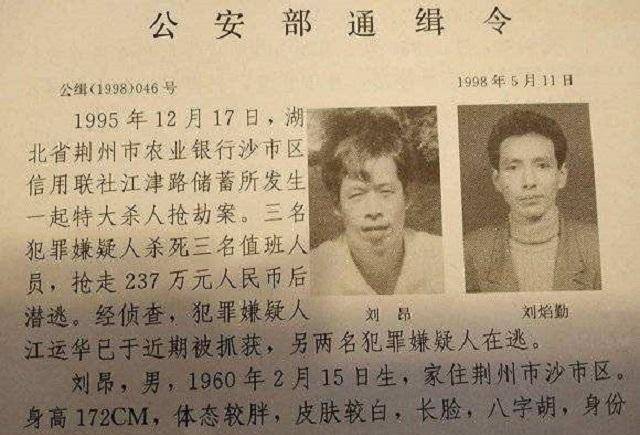 公安部通缉令
公缉(1998)046号
1998年5月11日
1995年12月17日，湖
北省荆州市农业银行沙市区
信用联社江津路储蓄所发生
一起特大杀人抢劫案。三名
犯罪嫌疑人杀死三名值班人
员，抢走237万元人民币后
潜逃。经侦查，犯罪嫌疑人
刘昂
刘焰勤
江运华已于近期被抓获，另两名犯罪嫌疑人在逃。
刘昂，男，1960年2月15日生，家住荆州市沙市区。
身高172CM，体态较胖，皮肤较白，长脸，八字胡，身份